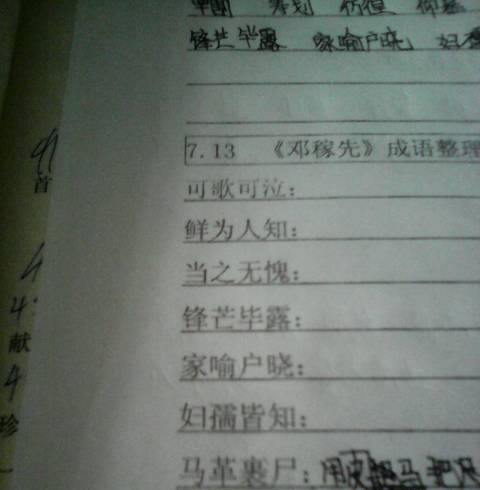 筹划
锋芒毕露 家喻户晓 妇孺
7.13 《邓稼先》成语整理
可歌可泣：
首
鲜为人知：
当之无愧：
4
锋芒毕露：
献
家喻户晓：
4
妇孺皆知：
珍
马革裹尸：用